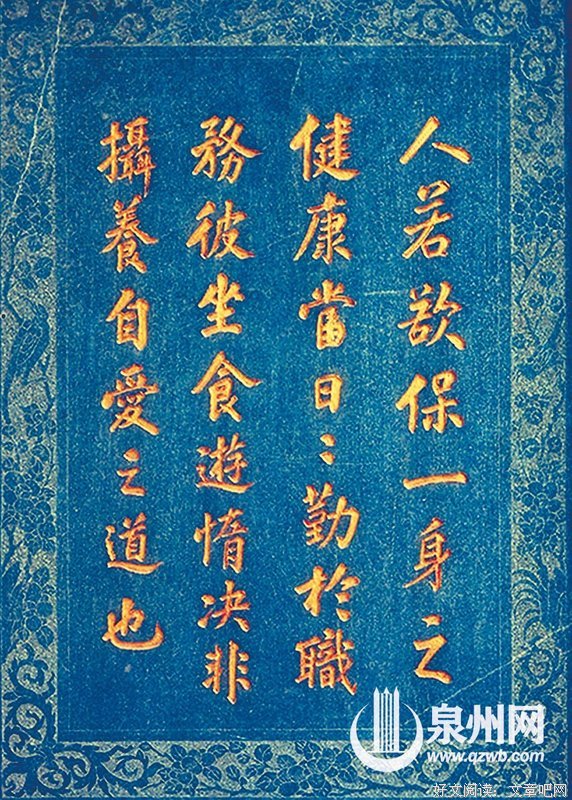 人若欲保一身之
健康當日〻勤於職
務彼坐食遊惰决非
攝養自愛之道也
泉州网
www.qzwb.com
好文阅读:文章吧网